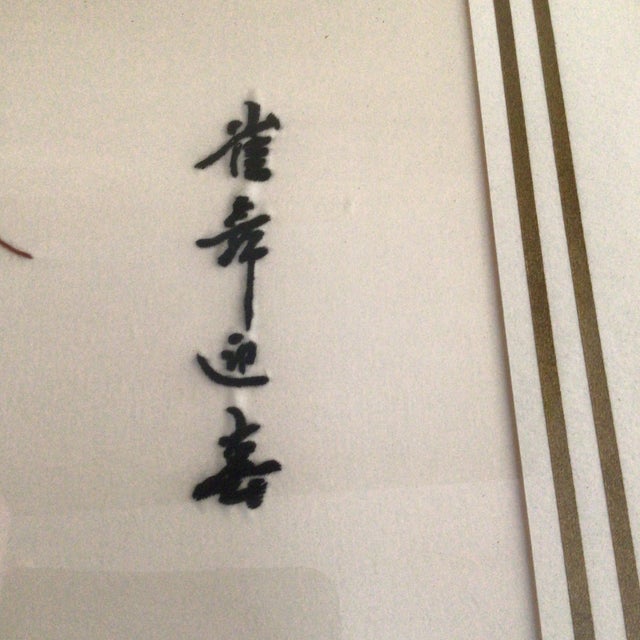 雀舞迎春